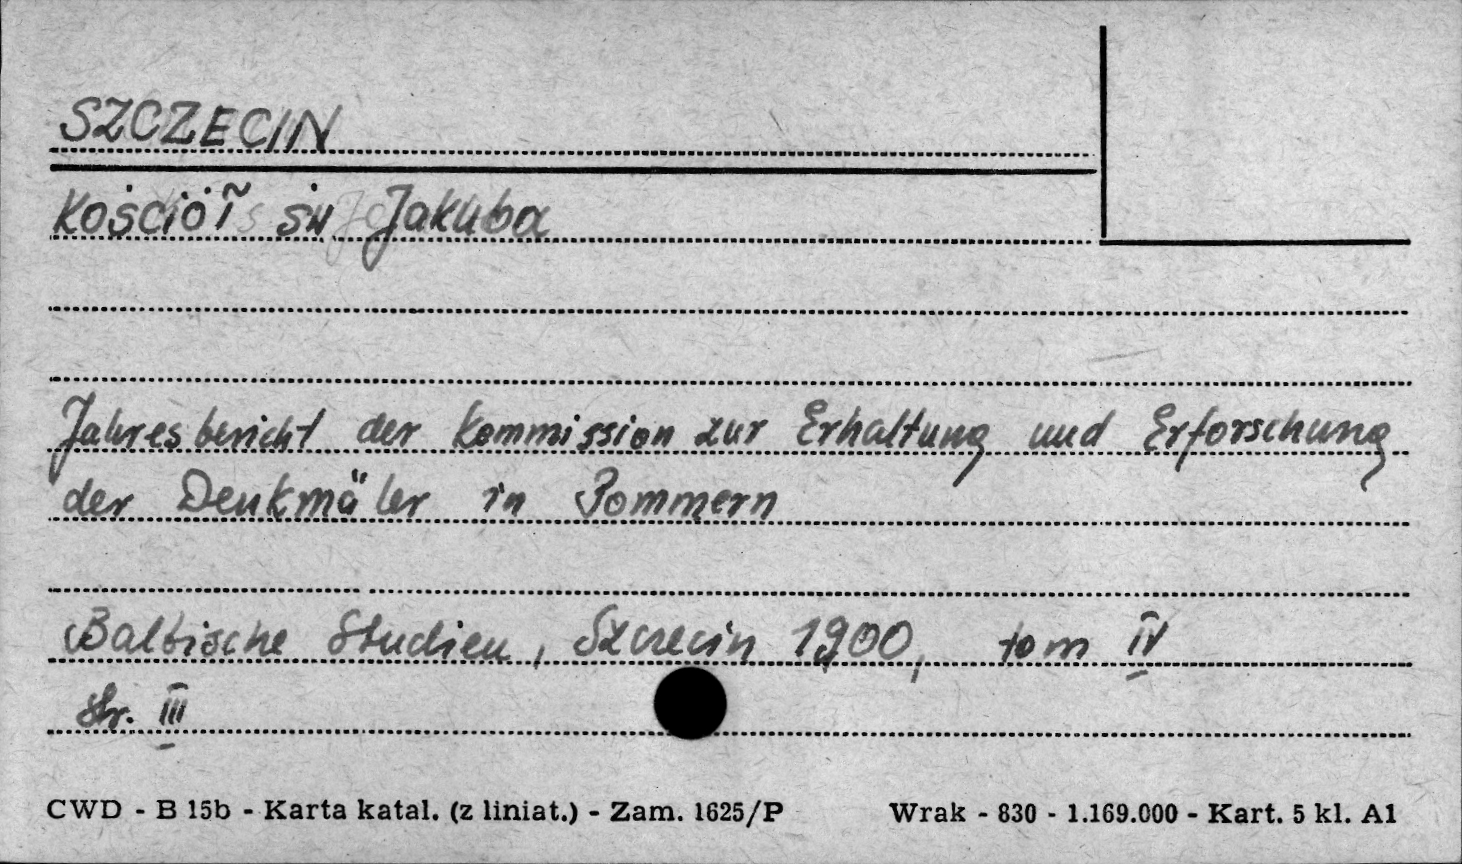 SZCZECIN
Kościół św Jakuba
Jahresbericht der Kommission zur Erhaltung und Erforschung
der Denkmäler in Pommern
Baltische Studien, Szczecin 1900, tom IV
str. III
CWD - B 15b - Karta katal. (z liniat.) - Zam. 1625/P Wrak - 830 - 1.169.000 - Kart. 5 kl. A1